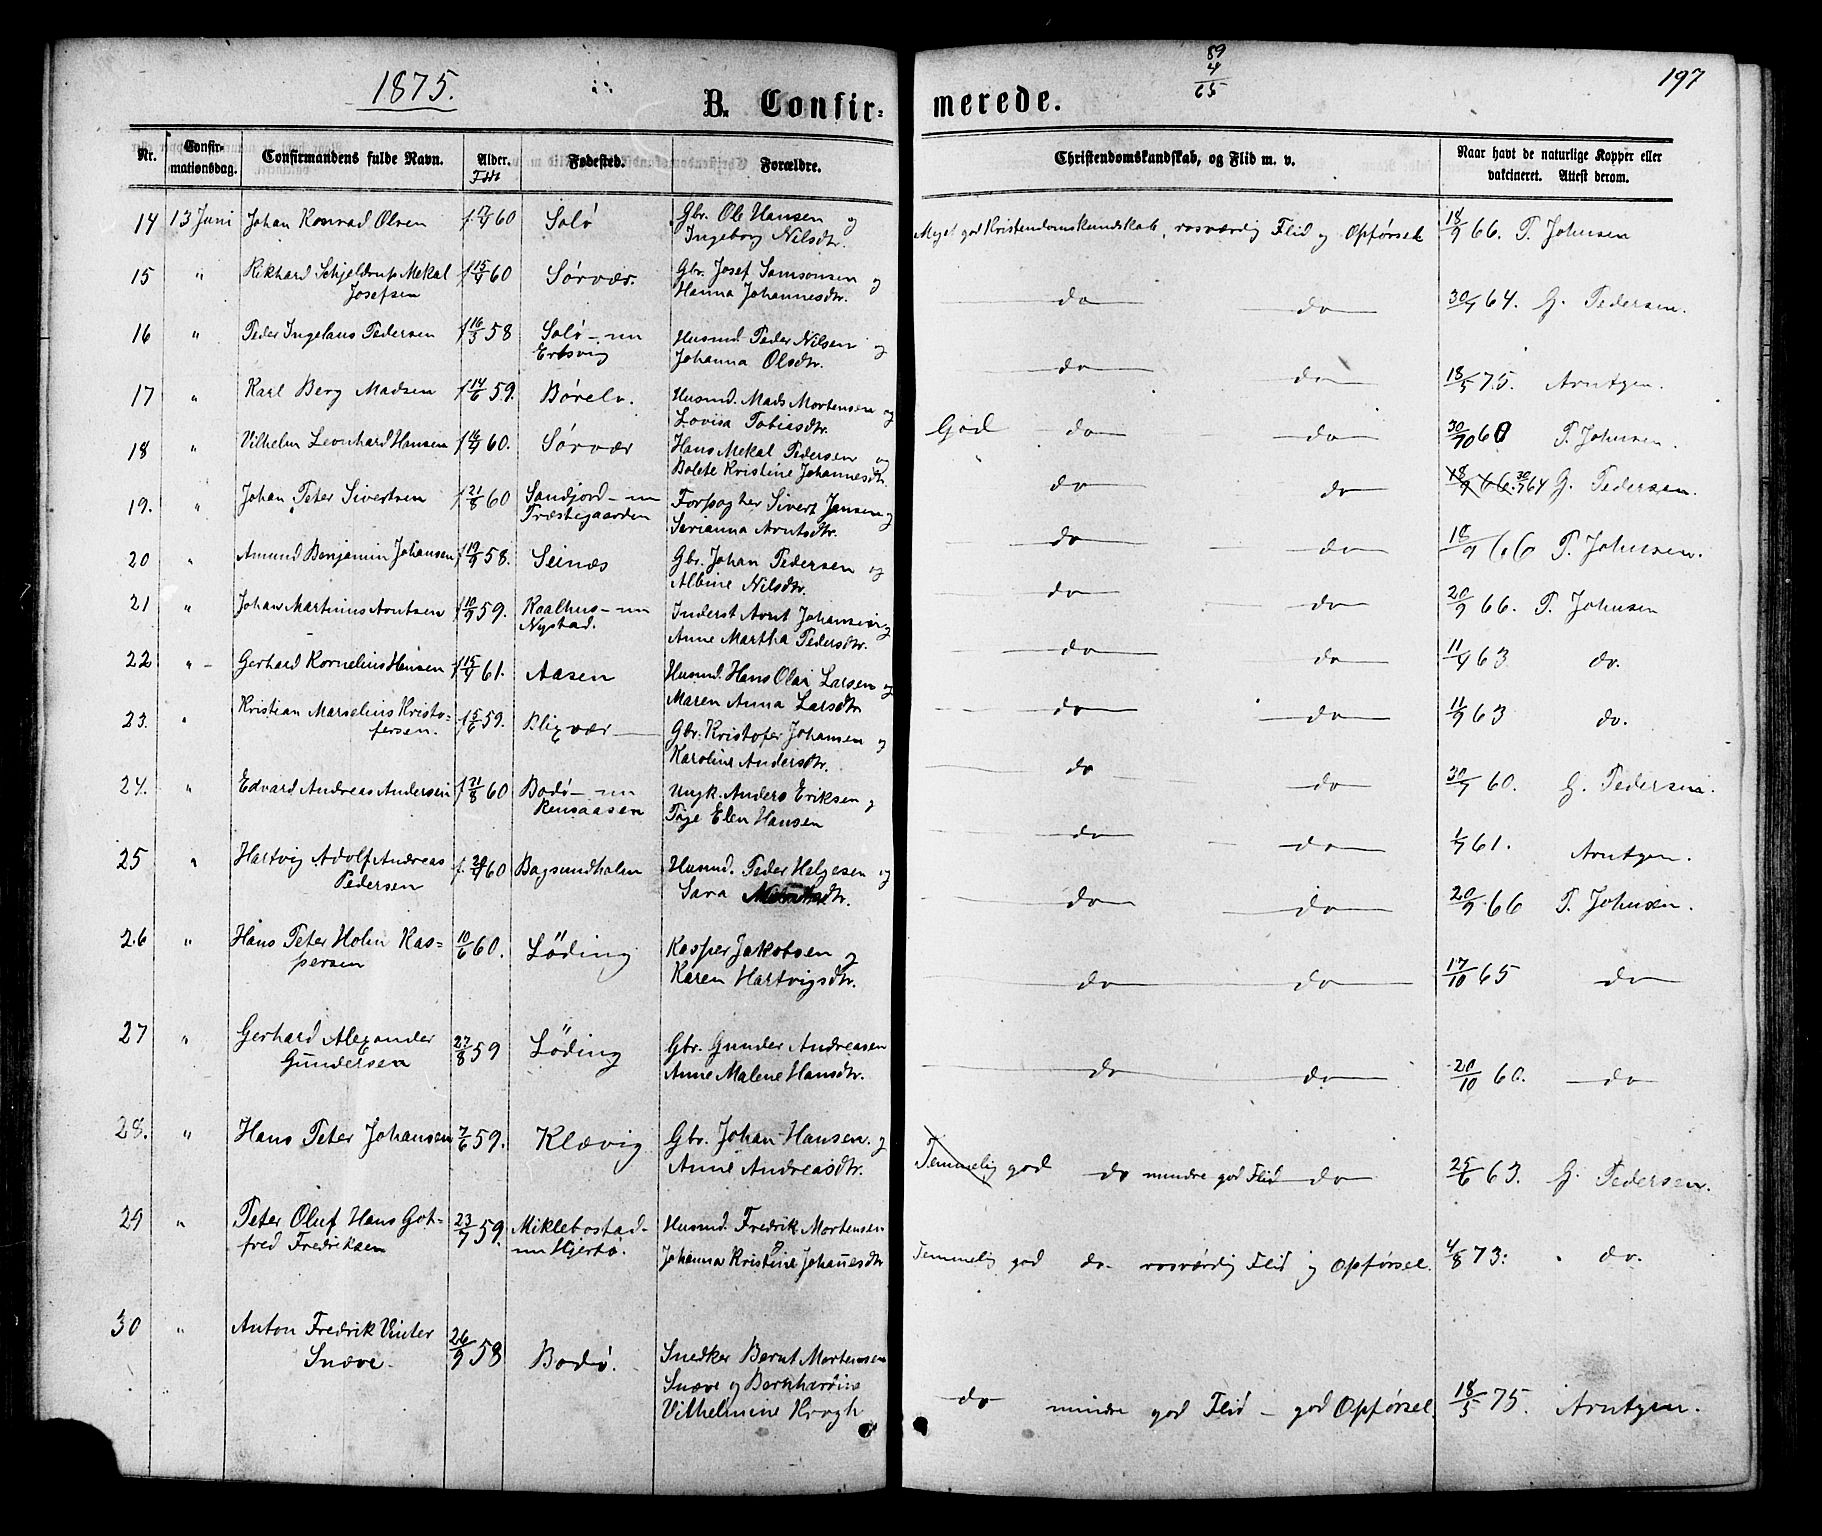 1875.
B. Confir-
merede.
89
4
65
197
Nr. Confir-mationsdag. Confirmandens fulde Navn. Alder. Født Fødested. Forældre. Christendomskundskab, og Flid m. v. Naar havt de naturlige Kopper eller vakcineret. Attest derom.
14 13 Juni Johan Konrad Olsen 60 Solø Gbr. Ole Hansen og Ingeborg Nilsdtr. Meget god Kristendomskundskab, rosværdig Flid og Opførsel 18/9 66. P. Johnsen
15 " Rikhard Schjeldrup Mekal Josefsen f 15/4 60 Sørvær. Gbr. Josef Samsonsen og Hanna Johannesdtr. do do 30/7 64. G. Pedersen.
16 " Peder Ingelaus Pedersen f 16/3 58 Solø – nu Ertsvig Husmd. Peder Nilsen og Johanna Olsdtr. do do 18/5 75. Arntzen.
17 " Karl Berg Madsen f 14/6 59. Børelv. Husmd. Mads Mortensen og Lovisa Tobiasdtr. God do do 30/10 60 P. Johnsen.
18 " Vilhelm Leonhard Hansen f 16/4 60. Sørvær Hans Mekal Pedersen og Bolete Kristine Johannesdtr. do do 18/9 66. 30/7 64 G. Pedersen.
19. " Johan Peter Sivertsen f 21/8 60 Sandjord – nu Præstegaarden Forpagter Sivert Jansen og Sarianna Arntsdtr. do do 18/9 66 P. Johnsen.
20 " Amund Benjamin Johansen f 19/9 58. Seinæs Gbr. Johan Pedersen og Albine Nilsdtr. do do 20/9 66. P. Johnsen
21 " Johan Martinus Arntsen f 10/9 59. Kaalhus – nu Nystad. Inderst Arnt Johansen og Anne Martha Pedersdtr. do do 11/4 63 do.
22 " Gerhard Kornelius Hansen f 15/4 61. Aasen Husmd. Hans Olai Larsen og Maren Anna Larsdtr. do do 11/9 63 do.
23. " Kristian Marselius Kristo-fersen. f 5/6 59. Bligvær Gbr. Kristofer Johansen og Karoline Andersdtr. do do 30/7 60. G. Pedersen.
24. " Edvard Andreas Andersen f 21/8 60 Bodø – nu Rensaasen Ungk. Anders Eriksen og Pige Elen Hansen do do 61. Arntzen.
25 " Hartvig Adolf Andreas Pedersen f. 60 Bagsundholm Husmd. Peder Helgesen og Sara dtr. do do 20/9 66 P. Johnsen.
26 " Hans Peter Holm Kas-persen 10/6 60. Løding Kasper Jakobsen og Karen Hartvigsdtr. do do 17/10 65 do
27 " Gerhard Alexander Gundersen 27/8 59 Løding Gbr. Gunder Andreasen Anne Malene Hansdtr. do do 20/10 60. do
28. " Hans Peter Johansen 7/6 59. Klævig Gbr. Johan Hansen. og Anne Andreasdtr. Temmelig god do mindre god Flid do 25/6 63. G. Pedersen.
29 " Peter Oluf Hans Got-fred Fredriksen 23/7 59. Miklebostad – nu Hjertø. Husmd. Fredrik Mortensen og Johanna Kristine Johanesdtr Temmelig god do rosværdig Flid og Opførsel. 4/8 73. do.
30 " Anton Fredrik Vinter Snæve 26/9 58 Bodø. Snedker Bernt Mortensen Snæve og Bernhardine Vilhelmine Krogh do mindre god Flid – god Opførsel. 18/5 75. Arntzen.